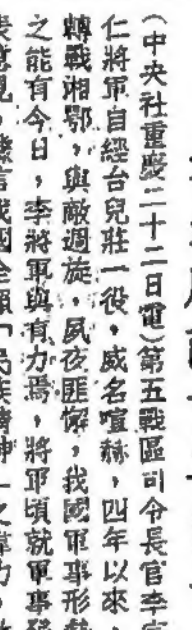 (中央社重慶二十二日電)第五戰區司令長官李宗
仁將軍自經台兒莊一役，威名喧赫，四年以來，
轉戰湘鄂，與敵週旋，夙夜匪懈，我國軍事形勢
之能有今日，李將軍與有力焉，將軍頃就軍事發
表意見，發言我國全賴「民族精神」之